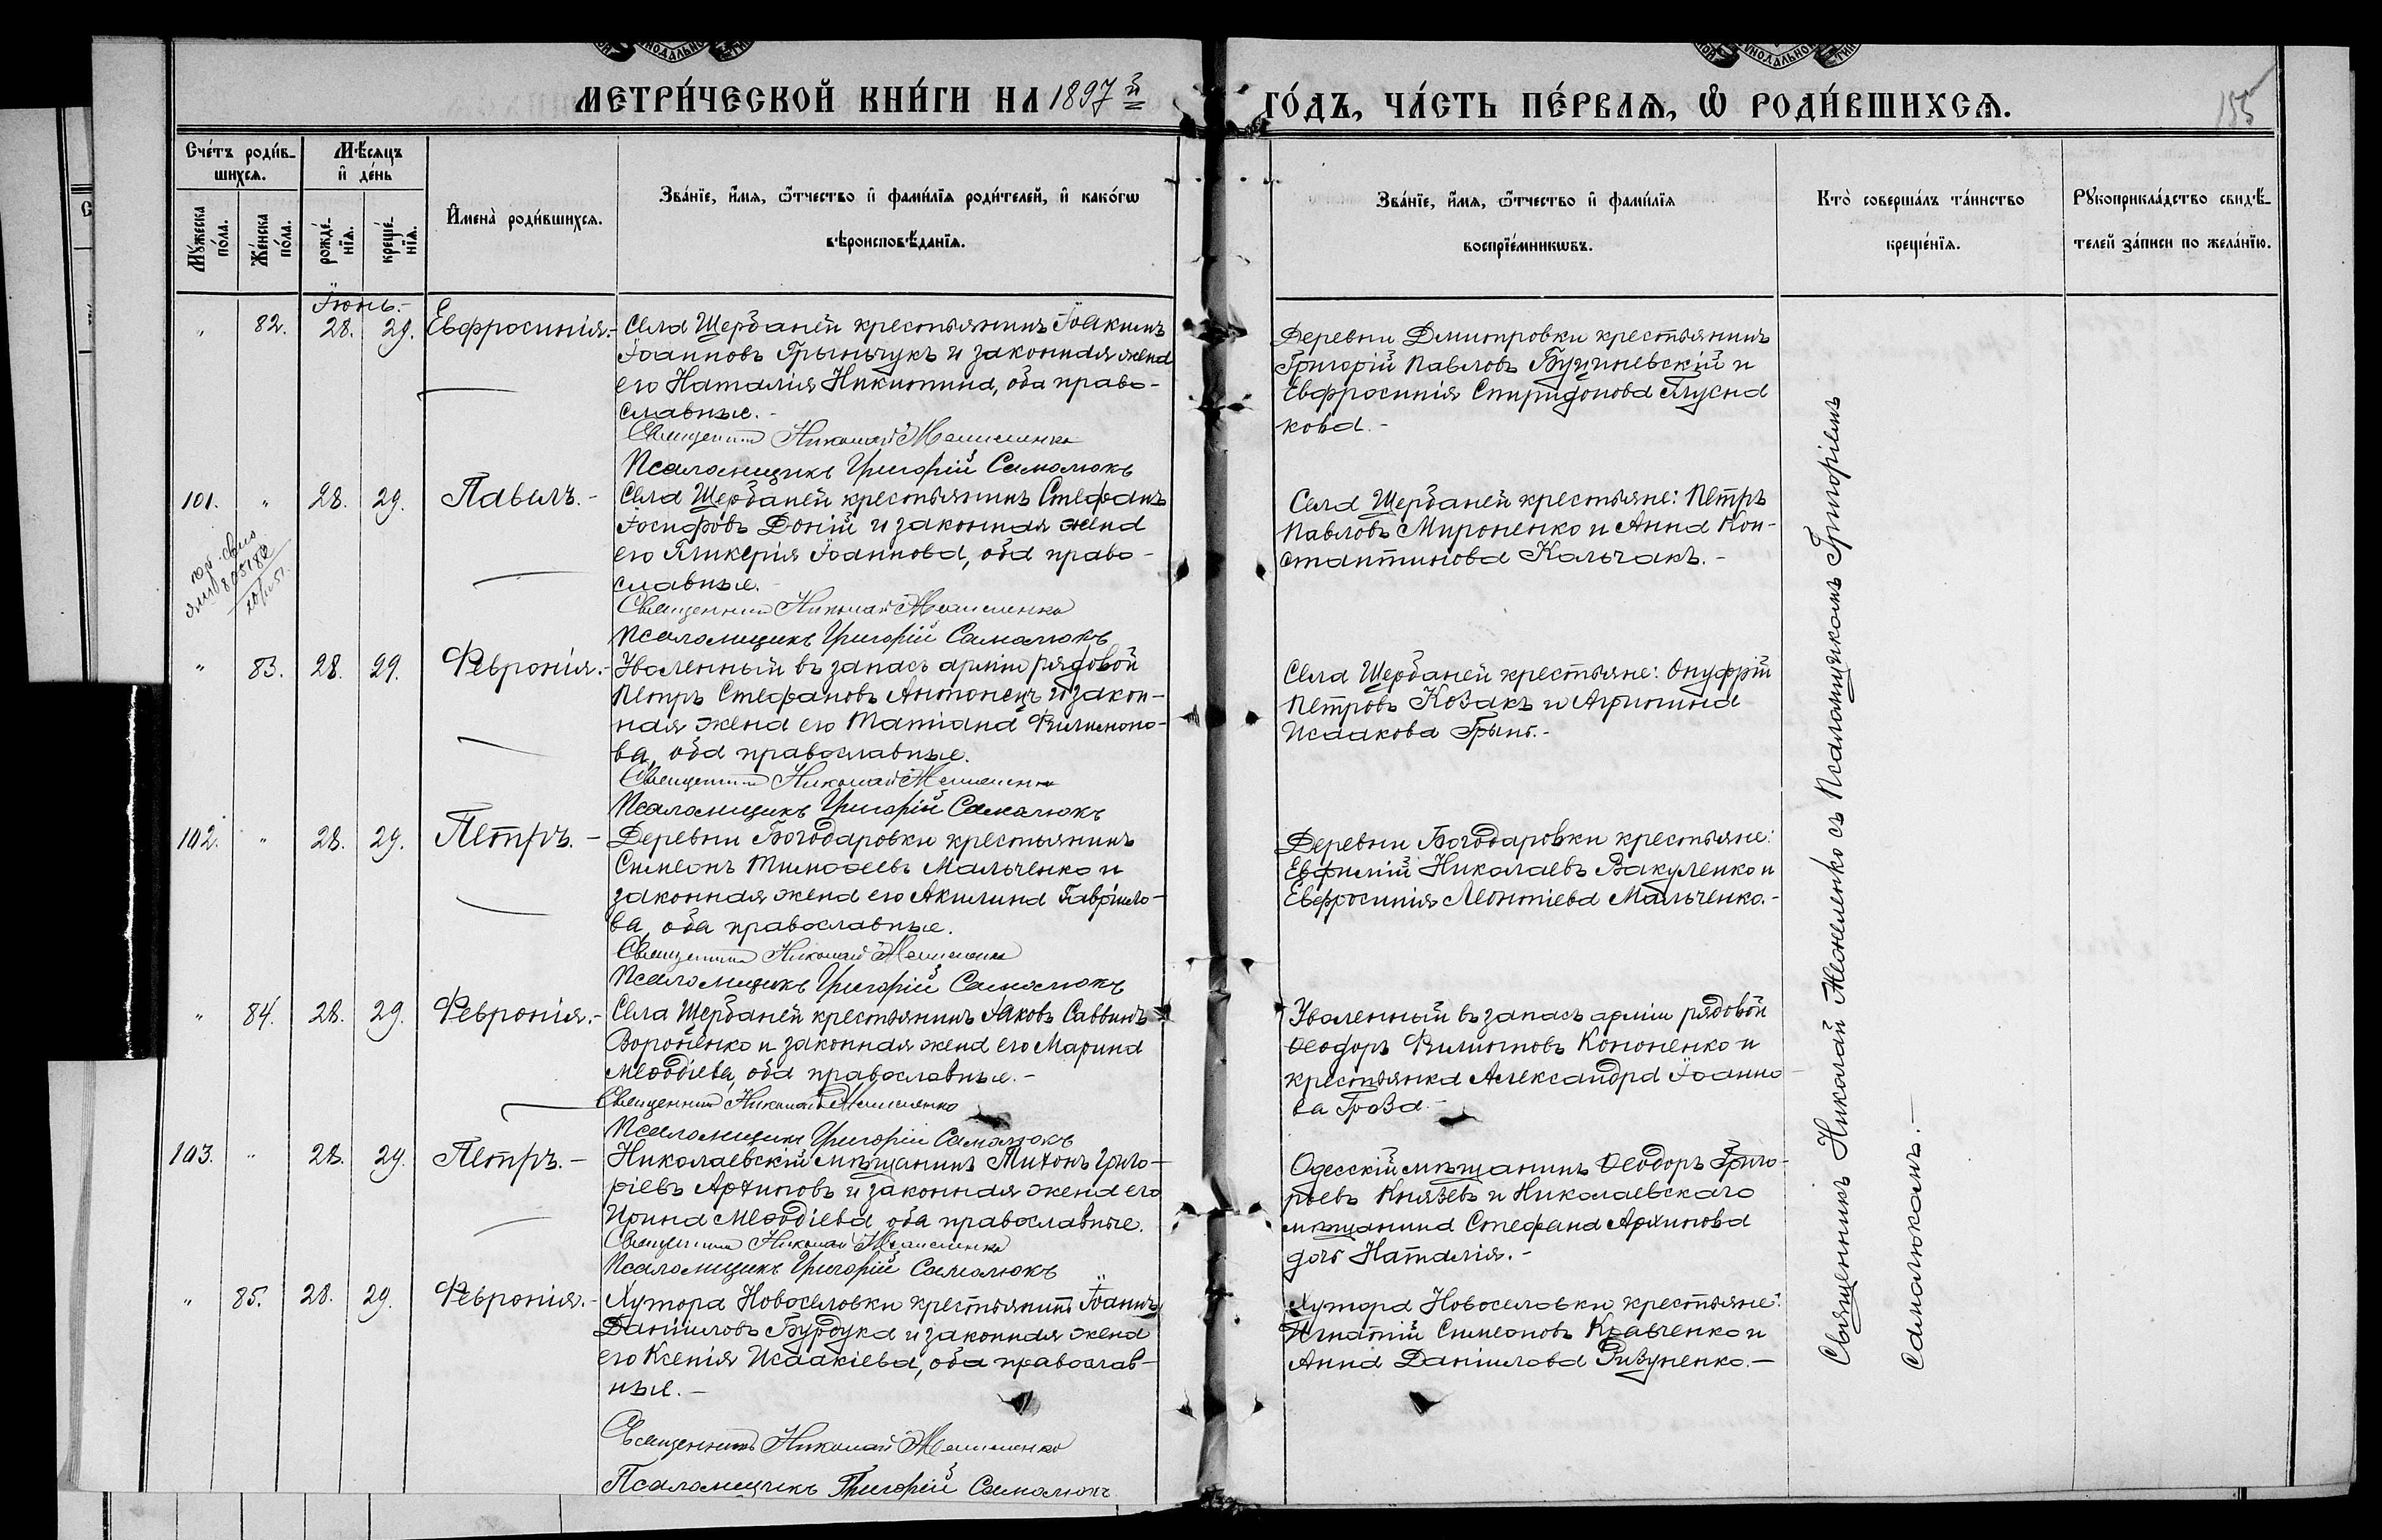 МЕТРИ́ЧЕСКОЙ КНИ́ГИ НА 1897й
ГО́ДЪ, ЧА́СТЬ ПЕ́РВАѦ, Ѽ РОДИ́ВШИХСѦ.
155
Сче́тъ роди́в-
шихсѧ.
Мѣ́сѧцъ
и҆ де́нь
Мꙋ́жеска
по́ла.
Же́нска
по́ла.
рожде́-
нїѧ.
креще́-
нїѧ.
И҆мена̀ роди́вшихсѧ.
Зва́нїе, и҆́мѧ, ѻ҆́тчество и҆ фами́лїѧ роди́телей, и҆ како́гѡ
вѣроисповѣ́данїѧ.
Зва́нїе, и҆́мѧ, ѻ҆́тчество и҆ фами́лїѧ
воспрїе́мникѡвъ.
Кто̀ соверша́лъ та́инство
креще́нїѧ.
Рꙋкоприкла́дство свидѣ́-
телей за́писи по жела́нїю.
Іюнь.-
" 82. 28. 29. Евфросинія.-
Села Щербаней крестьянинъ Іоакимъ
Іоанновъ Грынчукъ и законная жена
его Наталія Никитина, оба право-
славные.-
Священникъ Николай
Псаломщикъ Григорій Самолюкъ
Деревни Дмитровки крестьянинъ
Григорій Павловъ Бугиневскій и
Евфросинія Спиридонова Глусна
кова.-
101. " 28. 29. Павелъ.-
Села Щербаней крестьянинъ Стефанъ
Іосифовъ Доній и законная жена
его Гликерія Іоаннова, оба право-
славные.
Священникъ Николай
Псаломщикъ Григорій Самолюкъ
Села Щербаней крестьяне: Петръ
Павловъ Мироненко и Анна Кон-
стантинова Кольчакъ.-
" 83. 28. 29. Февронія.-
Уволенный въ запасъ арміи рядовой
Петръ Стефановъ Антонецъ и закон-
ная жена его Татіана Филимоно-
ва, оба православные.
Священникъ Николай
Псаломщикъ Григорій Самолюкъ
Села Щербаней крестьяне: Онуфрій
Петровъ Козакъ и Агрипина
Исаакова Грынь.-
102. " 28. 29. Петръ.-
Деревни Богодаровки крестьянинъ
Симеонъ Тимоѳеевъ Мальченко и
законная жена его Акилина Гавріило-
ва, оба православные.
Священникъ Николай
Псаломщикъ Григорій Самолюкъ
Деревни Богодаровки крестьяне:
Евфимій Николаевъ Вакуленко и
Евфросинія Леонтіева Мальченко.-
" 84. 28. 29. Февронія.-
Села Щербаней крестьянинъ Іаковъ Саввинъ
Вороненко и законная жена его Марина
Меѳодіева, оба православные.-
Священникъ Николай
Псаломщикъ Григорій Самолюкъ
Уволенный въ запасъ арміи рядовой
Ѳеодоръ Филиповъ Кононенко и
крестьянка Александра Іоанно-
ва Гроза.-
103. " 28. 29. Петръ.-
Николаевскій мѣщанинъ Тихонъ Григо-
ріевъ Архиповъ и законная жена его
Ирина Меѳодіева оба православные.
Священникъ Николай
Псаломщикъ Григорій Самолюкъ
Одесскій мѣщанинъ Ѳеодоръ Григо-
рьевъ Князевъ и Николаевскаго
мѣщанина Стефана Архипова
дочь Наталія.-
" 85. 28. 29. Февронія.-
Хутора Новоселовки крестьянинъ Іоаннъ
Даніиловъ Бурдука и законная жена
его Ксенія Исаакіева, оба православ-
ные.-
Священникъ Николай
Псаломщикъ Григорій Самолюкъ
Хутора Новоселовки крестьяне:
Игнатій Симеоновъ Кравченко и
Анна Даніилова Ризуненко.-
Священникъ Николай съ Псаломщикомъ Григоріемъ
Самолюкомъ.-